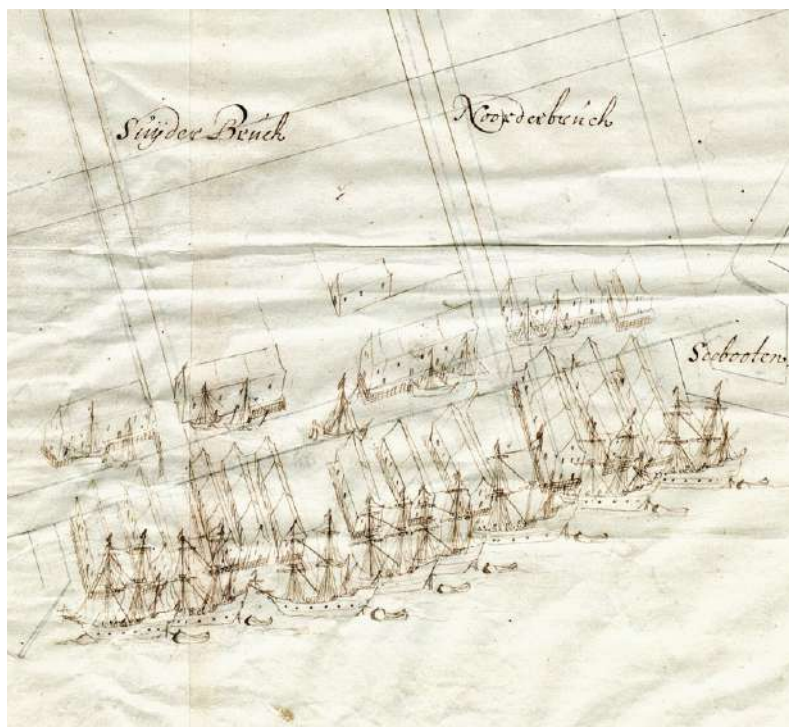 Suÿder Brúch
Noorderbrúch
Seebooten